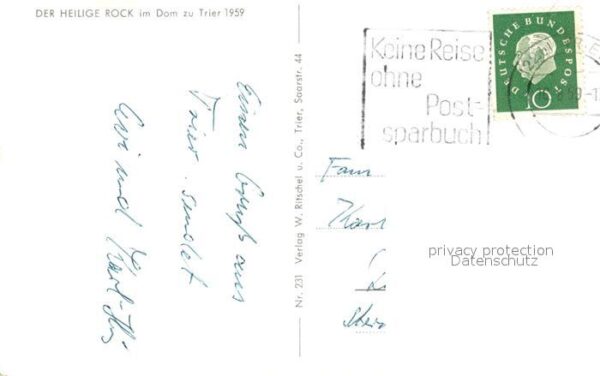 DER HEILIGE ROCK im Dom zu Trier 1959
Einen Gruß aus
Trier sendet
und Karl-Hz
Nr. 231 Verlag W. Ritschel u. Co., Trier, Saarstr. 44
Keine Reise
ohne
Post-
sparbuch
DEUTSCHE BUNDESPOST
10
Fam
Karl
privacy protection
Datenschutz